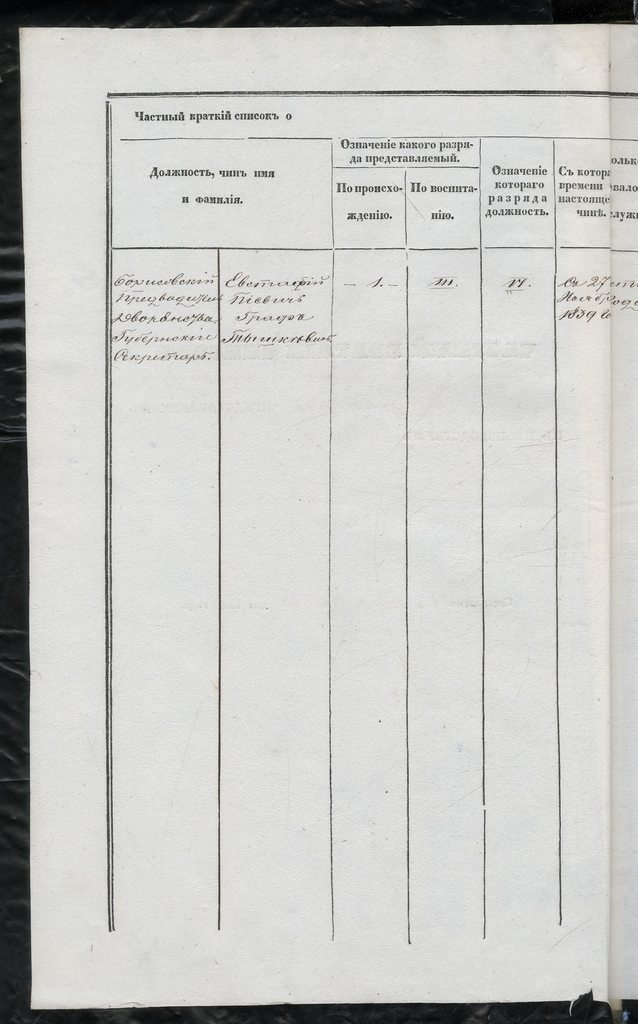 Частный краткій списокъ о
Должность, чинъ имя
и фамилія.
Означеніе какого разря-
да представляемый.
По происхо-
жденію.
По воспита-
нію.
Означеніе
котораго
разряда
должность.
Съ котора
времени
настояще
чинѣ.
Борисовскій
Предводитель
Дворянства
Губернскій
Секретарь.
Евстафій
Піевичъ
Графъ
Тышкевичъ.
— 1. —
III.
IV.
Съ 27
Ноябр
1839 го